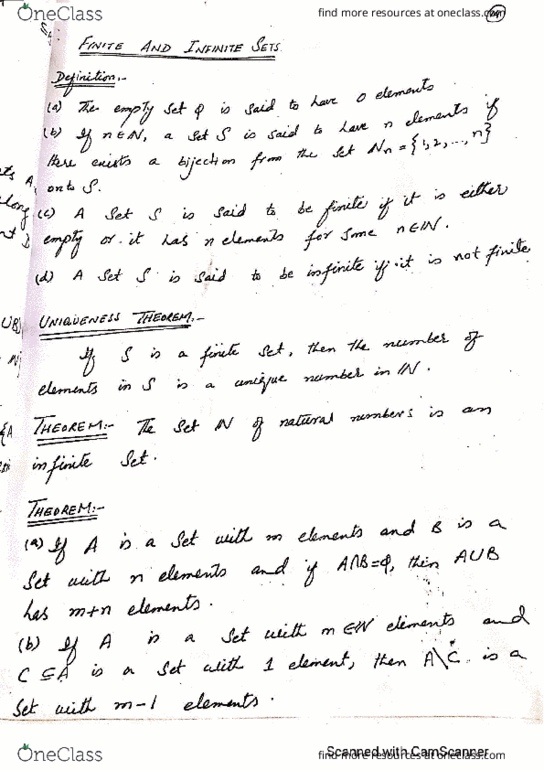 OneClass
find more resources at oneclass.com
FINITE AND INFINITE SETS
Definition:-
(a) The empty set φ is said to have 0 elements
(b) If n∈IN, a set S is said to have n elements if
there exists a bijection from the set Nn = {1,2,...,n}
onto S.
(c) A set S is said to be finite if it is either
empty or it has n elements for some n∈IN.
(d) A set S is said to be infinite if it is not finite
UNIQUENESS THEOREM:-
If S is a finite set, then the number of
elements in S is a unique number in IN.
THEOREM:- The set IN of natural numbers is an
infinite set.
THEOREM:-
(a) If A is a set with m elements and B is a
set with n elements and if A∩B=φ, then A∪B
has m+n elements.
(b) If A is a set with m∈IN elements and
C⊆A is a set with 1 element, then A\C is a
set with m-1 elements.
OneClass
Scanned with CamScanner
find more resources at oneclass.com